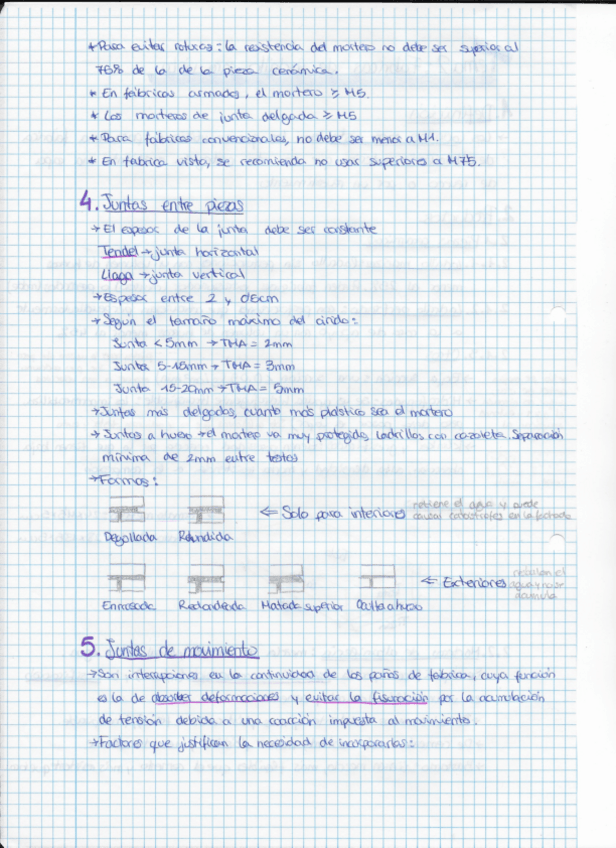 * Para evitar roturas: la resistencia del mortero no debe ser superior al
75% de la de la pieza cerámica.
* En fábricas armadas, el mortero ≥ M5.
* Los morteros de junta delgada ≥ M5
* Para fábricas convencionales, no debe ser menor a M1.
* En fábrica vista, se recomienda no usar superiores a M7,5.
4. Juntas entre piezas
→ El espesor de la junta debe ser constante
Tendel → junta horizontal
Llaga → junta vertical
→ Espesor entre 2 y
→ Según el tamaño máximo del árido:
Junta < 5mm → TMA = 2mm
Junta 5-15mm → TMA = 3mm
Junta 15-20mm → TMA = 5mm
→ Juntas más delgadas, cuanto más plástico sea el mortero
→ Juntas a hueso → el mortero va muy protegido, ladrillos con cazoleta. Separación
mínima de 2mm entre testas
→ Formas:
← Solo para interiores retiene el agua y puede
causar catástrofes en la fachada
Degollada Rehundida
← Exteriores resbalan el
agua y no se
acumula
Enrasada Redondeada Matada superior a hueso
5. Juntas de movimiento
→ Son interrupciones en la continuidad de los paños de fábrica, cuya función
es la de absorber deformaciones y evitar la fisuración por la acumulación
de tensión debida a una coacción impuesta al movimiento.
→ Factores que justifican la necesidad de incorporarlas: